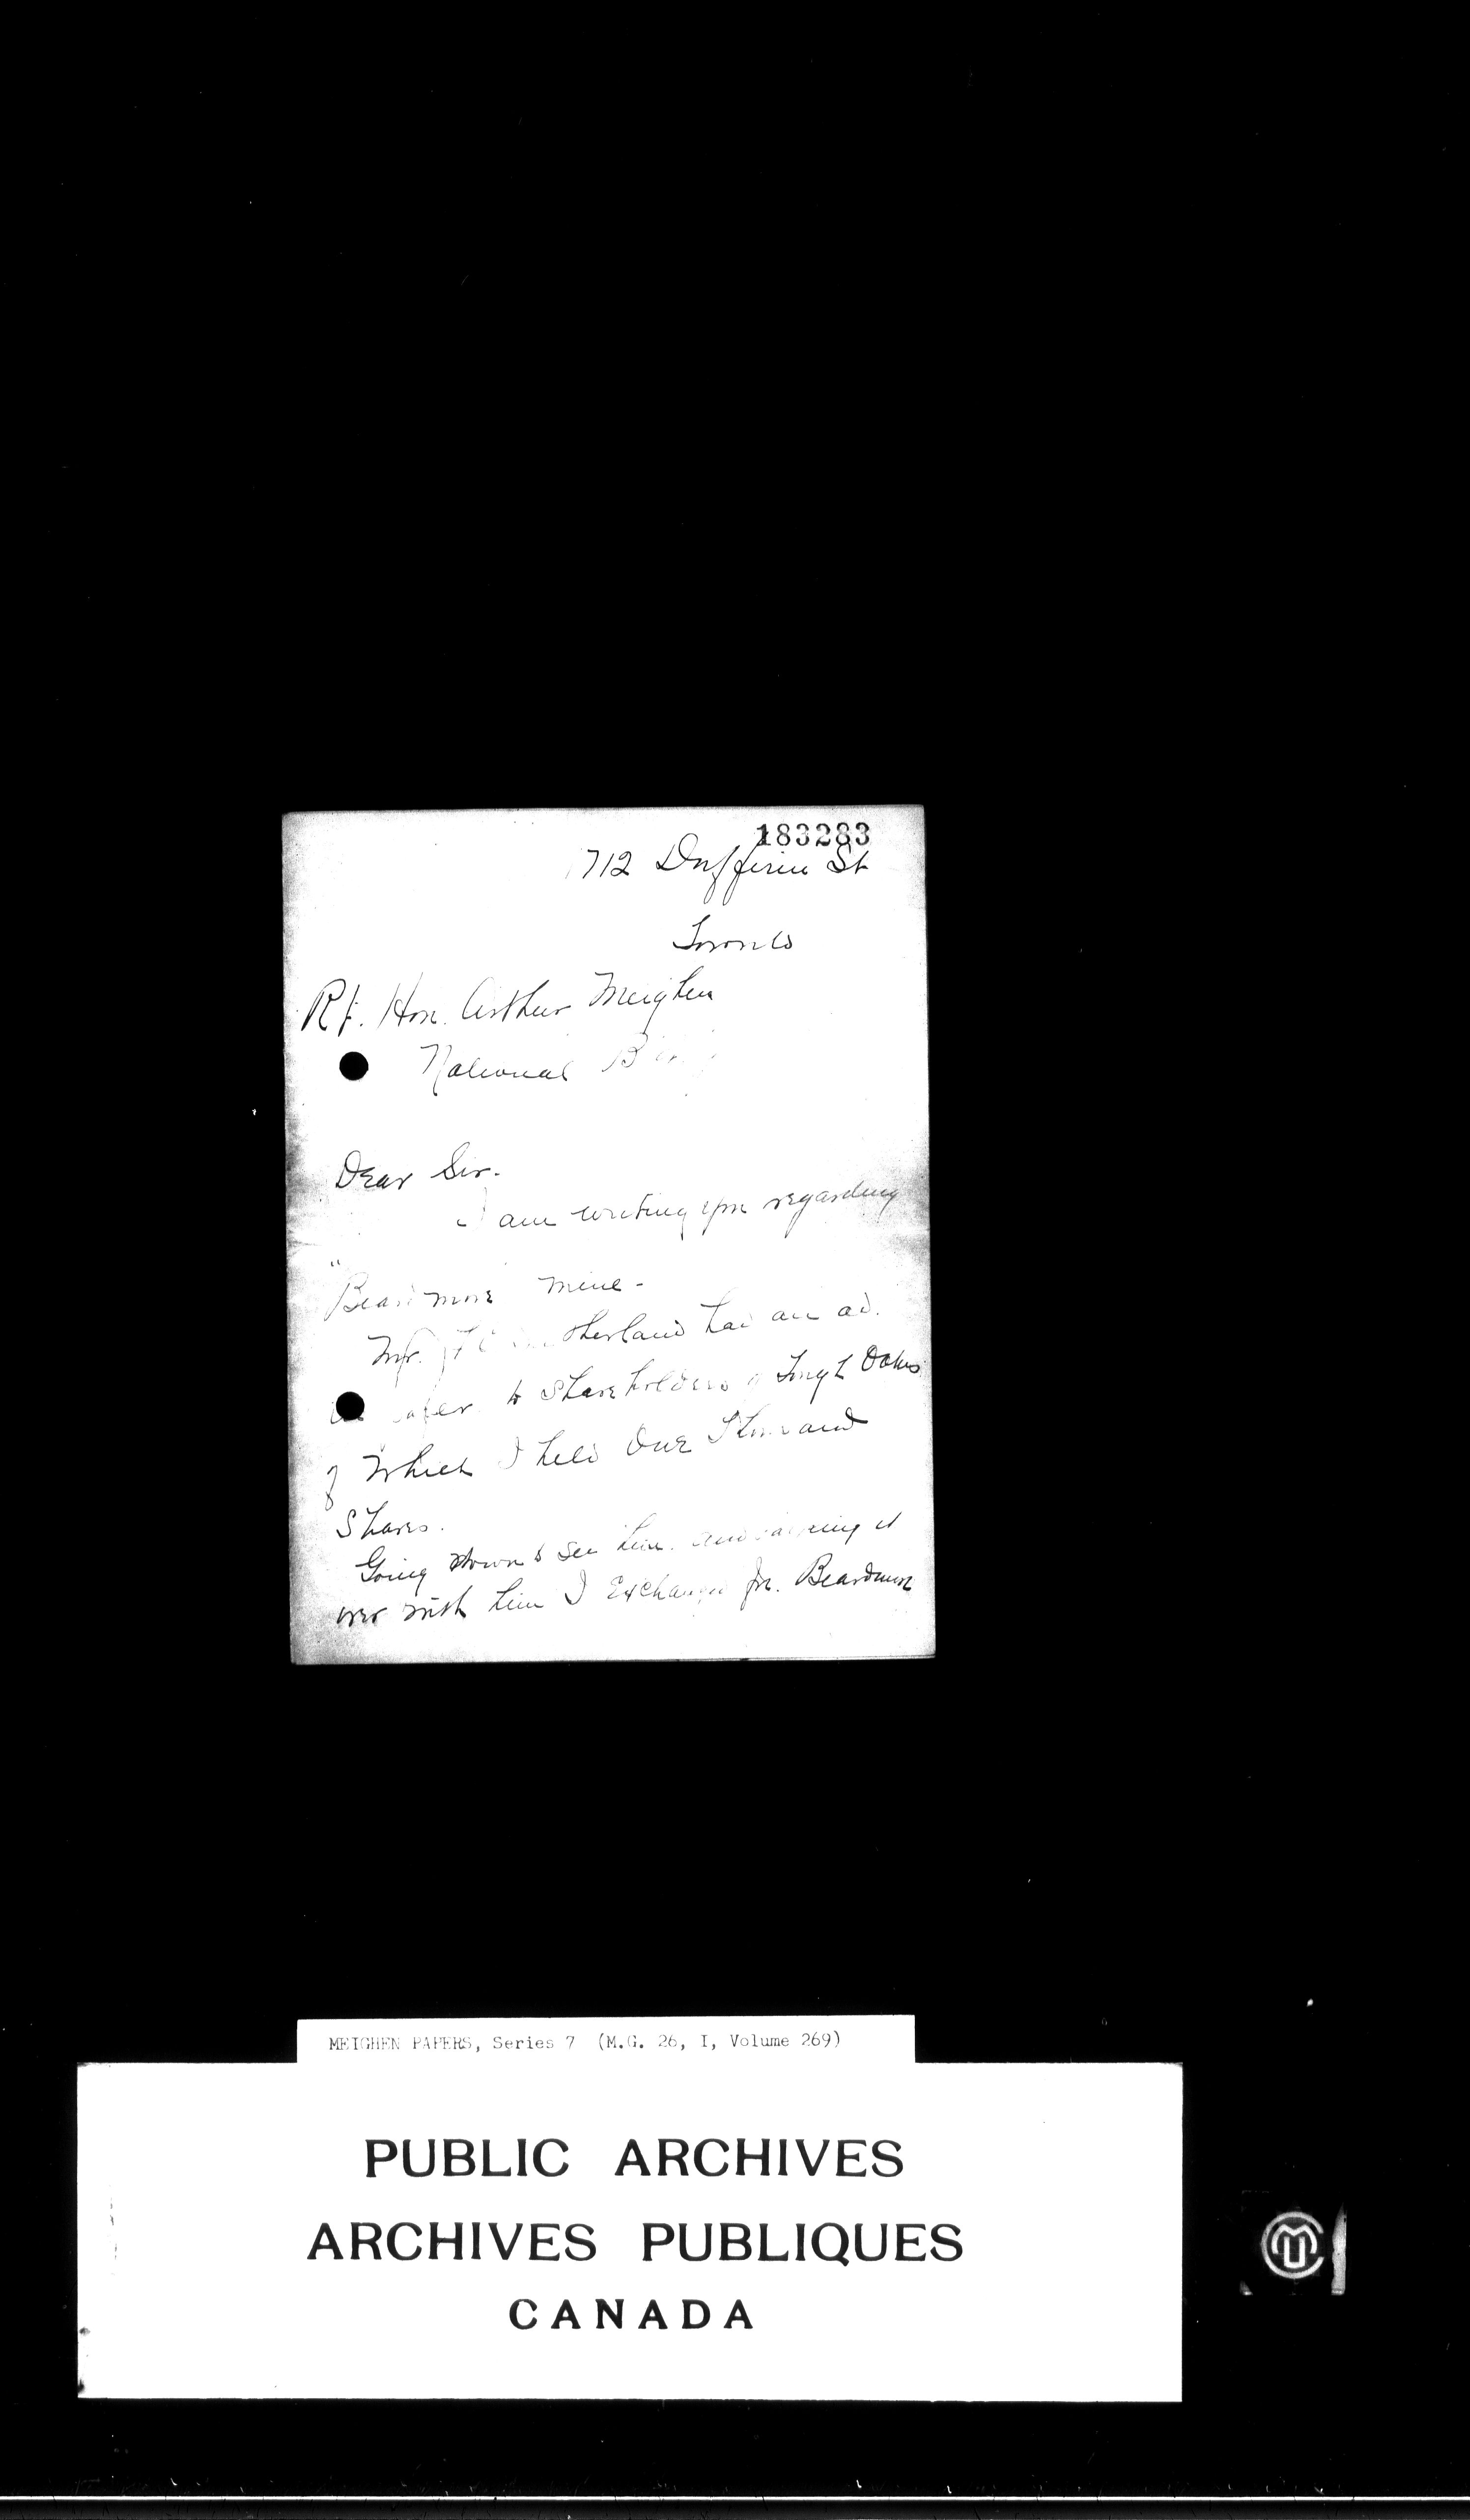 183283
1712 Dufferin St
Toronto
Rt. Hon. Arthur Meighen
National
Dear Sir.
I am writing you regarding
"Beardmore mine -
Mr. had an ad.
to shareholders of Tough Oakes
of which I held One Thousand
Shares.
Going down to see him. and it
over with him I Exchanged for. Beardmore
MEIGHEN PAPERS, Series 7 (M.G. 26, I, Volume 269)
PUBLIC ARCHIVES
ARCHIVES PUBLIQUES
CANADA